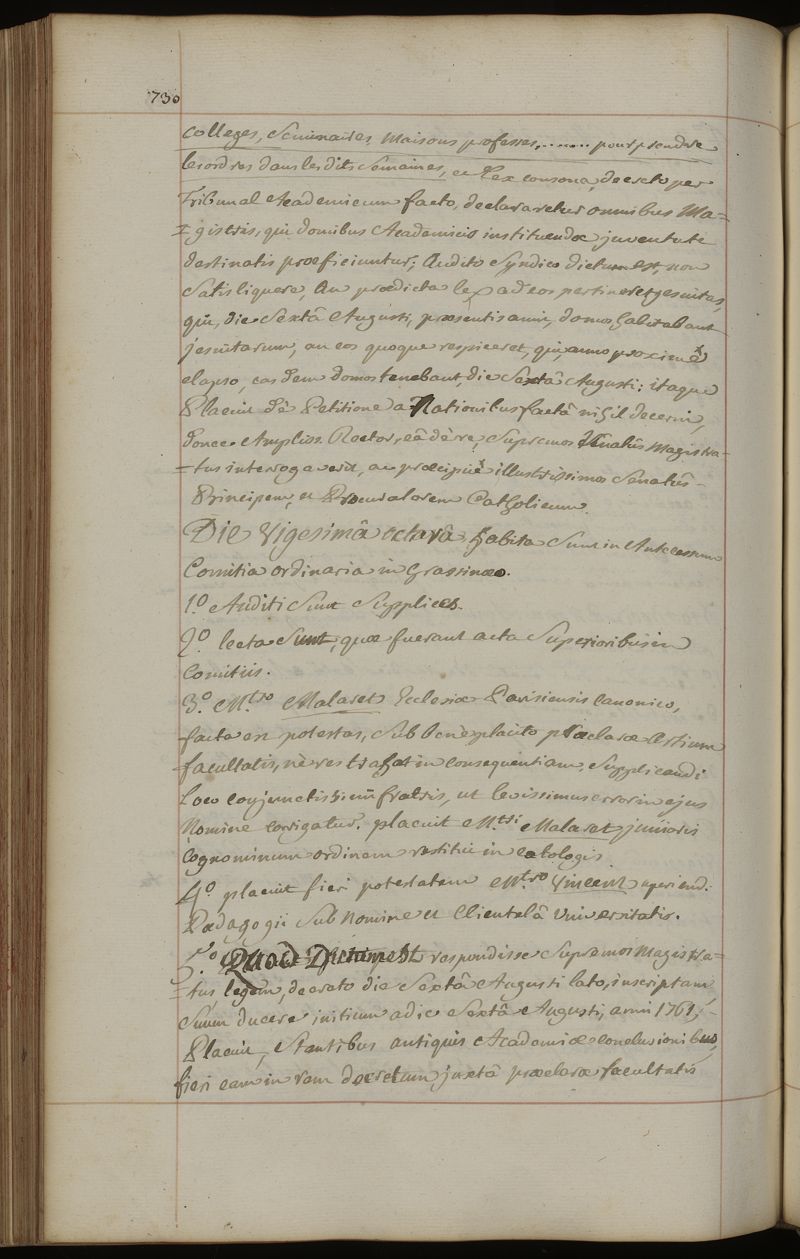 730
Colleges, Seminaires, Maisons professes,........ pour prendre
les ordres dans les dits Semaines, et lex consona, decreto per
Tribunal Academicum facto, declararetur omnibus Ma=
=gistris, qui domibus Academicis instituendæ juventute
destinatis præficiuntur; Audito Syndico dictum est, non
Satis liquere, An prædicta lex ad eos pertineret jesuitas,
qui, die Sextâ Augusti, præsentis anni, domos habitabant
jesuitarum, an eos quoque respiceret, qui anno proximè
elapso, easdem domos tenebant, die Sextâ Augusti; itaque
Placuit dè Petitione a Nationibus factâ nihil decerni,
donec Ampliss. Rector, eâ dè re, Supremos Senatûs Magistra-
=tus interrogaverit, an præcipuè illustrissimos Senatûs
Principem, et Procuratorem Catholicum.
Die Vigesimâ octavâ habita Sunt in Antecessum
Comitia ordinaria in Grassinæo.
1.o Auditi Sunt Supplices.
2.o lecta Sunt, quæ fuerant acta Superioribus in
Comitiis.
3.o M.tro Malaret Ecclesiæ Parisiensis Canonico,
facta est potestas, Sub beneplacito præclaræ Artium
facultatis, nè res trahat in consequentiam, Supplicandi
Loco conjunctissimi fratris, ut levissimus error in ejus
Nomine corrigatur. placuit M.tri Malaret junioris
Cognominum ordinem restitui in catologis
4.o placuit fieri potestatem M.tro Vincent aperiend.
Pædagogii Sub Nomine et Clientelâ Universitatis.
5.o Quod Dictum est respondisse Supremos Magistra=
=tus, legem, decreto die Sextâ Augusti lato, inscriptam,
Suum ducere initium a die Sextâ Augusti, anni 1761,
Placuit, Stantibus antiquis Academiæ conclusionibus,
fieri eam in rem decretum juxtâ præclaræ facultatis